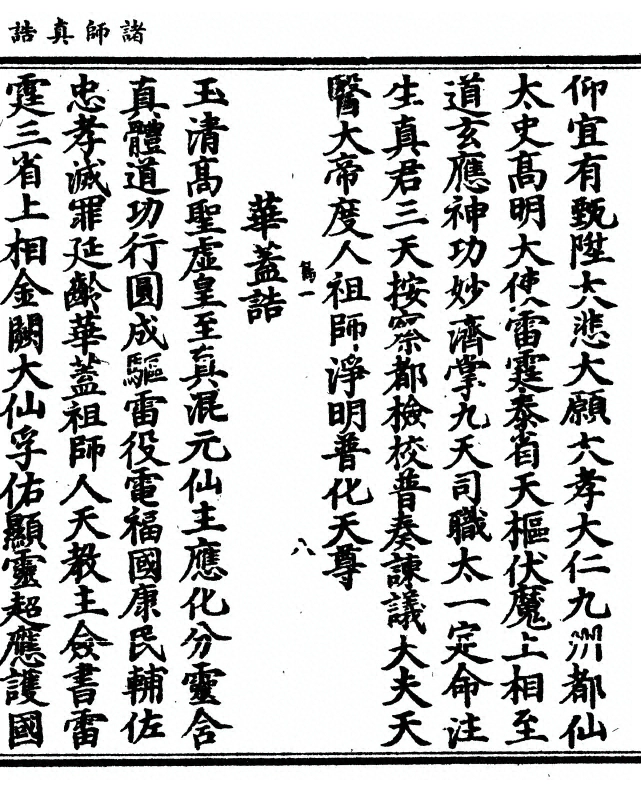 諸師真誥
仰宜有甄陞大悲大願大孝大仁九州都仙
太史高明大使雷霆泰省天樞伏魔上相至
道玄應神功妙濟掌九天司職太一定命注
生真君三天按察都檢校普奏諫議大夫天
醫大帝度人祖師淨明普化天尊
華蓋誥
玉清高聖虛皇至真混元仙主應化分靈含
真體道功行圓成驅雷役電福國康民輔佐
忠孝滅罪延齡華蓋祖師人天教主僉書雷
霆三省上相金闕大仙孚佑顯靈超應護國